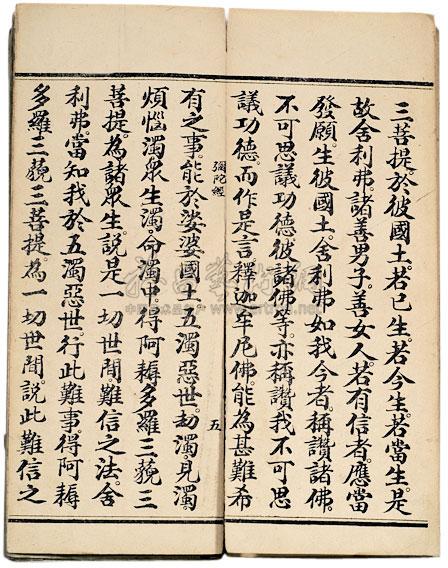 三菩提。於彼國土。若已生。若今生。若當生。是
故舍利弗。諸善男子。善女人。若有信者。應當
發願。生彼國土。舍利弗。如我今者。稱讚諸佛。
不可思議功德。彼諸佛等。亦稱讚我不可思
議功德。而作是言。釋迦牟尼佛。能為甚難希
彌陀經
五
有之事。能於娑婆國土。五濁惡世。劫濁。見濁。
煩惱濁。眾生濁。命濁中。得阿耨多羅三藐三
菩提。為諸眾生。說是一切世間。難信之法。舍
利弗。當知我於五濁惡世。行此難事。得阿耨
多羅三藐三菩提。為一切世間。說此難信之